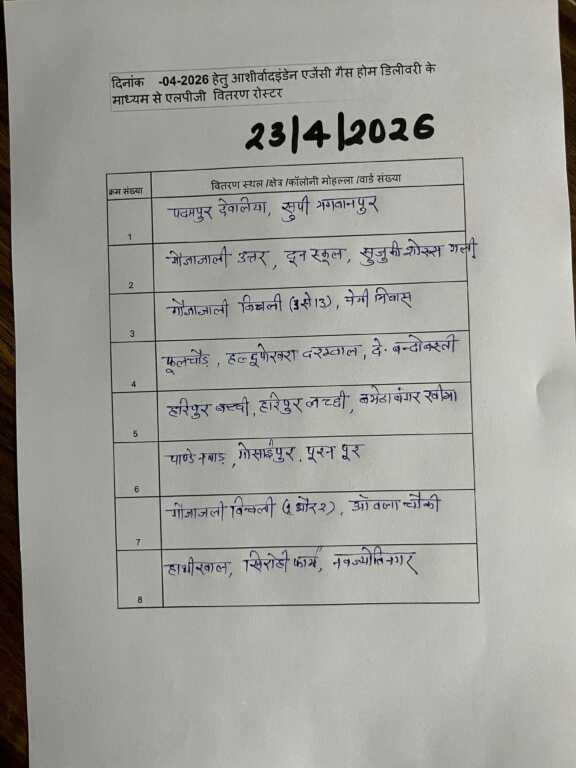 दिनांक -04-2026 हेतु आशीर्वादइंडेन एजेंसी गैस होम डिलीवरी के
माध्यम से एलपीजी वितरण रोस्टर
23/4/2026
क्रम संख्या वितरण स्थल /क्षेत्र /कॉलोनी मोहल्ला /वार्ड संख्या
1 पदमपुर देवलिया, सूपी भगवानपुर
2 गौजाजाली उत्तर, दून स्कूल, सुजुकी शोरूम गली
3 गौजाजाली बिचली (3से13), प्रेमी निवास
4 फूलचौड़, हल्दूपोखरा दरम्वाल, दे. बन्दोबस्ती
5 हरिपुर बच्ची, हरिपुर लच्छी, बमेठा बंगर खीमा
6 पाण्डे नवाड़, गोसाईपुर, पूरनपुर
7 गौजाजली बिचली (1 और 2), आंवला चौकी
8 हाथीखाल, सिरोही फार्म, नवज्योतिनगर